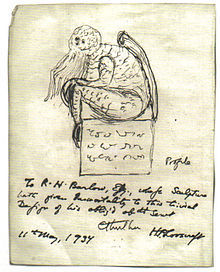 Profile
To R. H. Barlow, Esq., whoſe Sculpture
hath given Immortality to this trivial
Deſign of his oblig'd obt Servt
Cthulhu
11th May, 1934 HPLovecraft